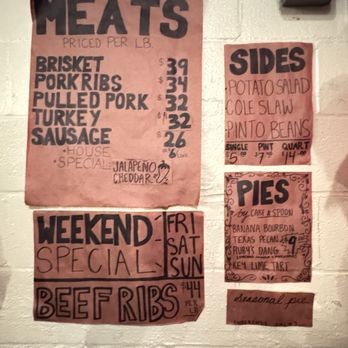 MEATS
PRICED PER LB.
BRISKET $39
PORK RIBS $34
PULLED PORK $32
TURKEY $32
SAUSAGE $26
·HOUSE
·SPECIAL:
JALAPEÑO
CHEDDAR
SIDES
·POTATO SALAD
·COLE SLAW
·PINTO BEANS
SINGLE PINT QUART
PIES
by CAKE & SPOON
BANANA BOURBON
TEXAS PECAN
RUBY'S DANG
KEY LIME TART
WEEKEND
SPECIAL
FRI
SAT
SUN
BEEF RIBS $44
PER
LB
seasonal pie